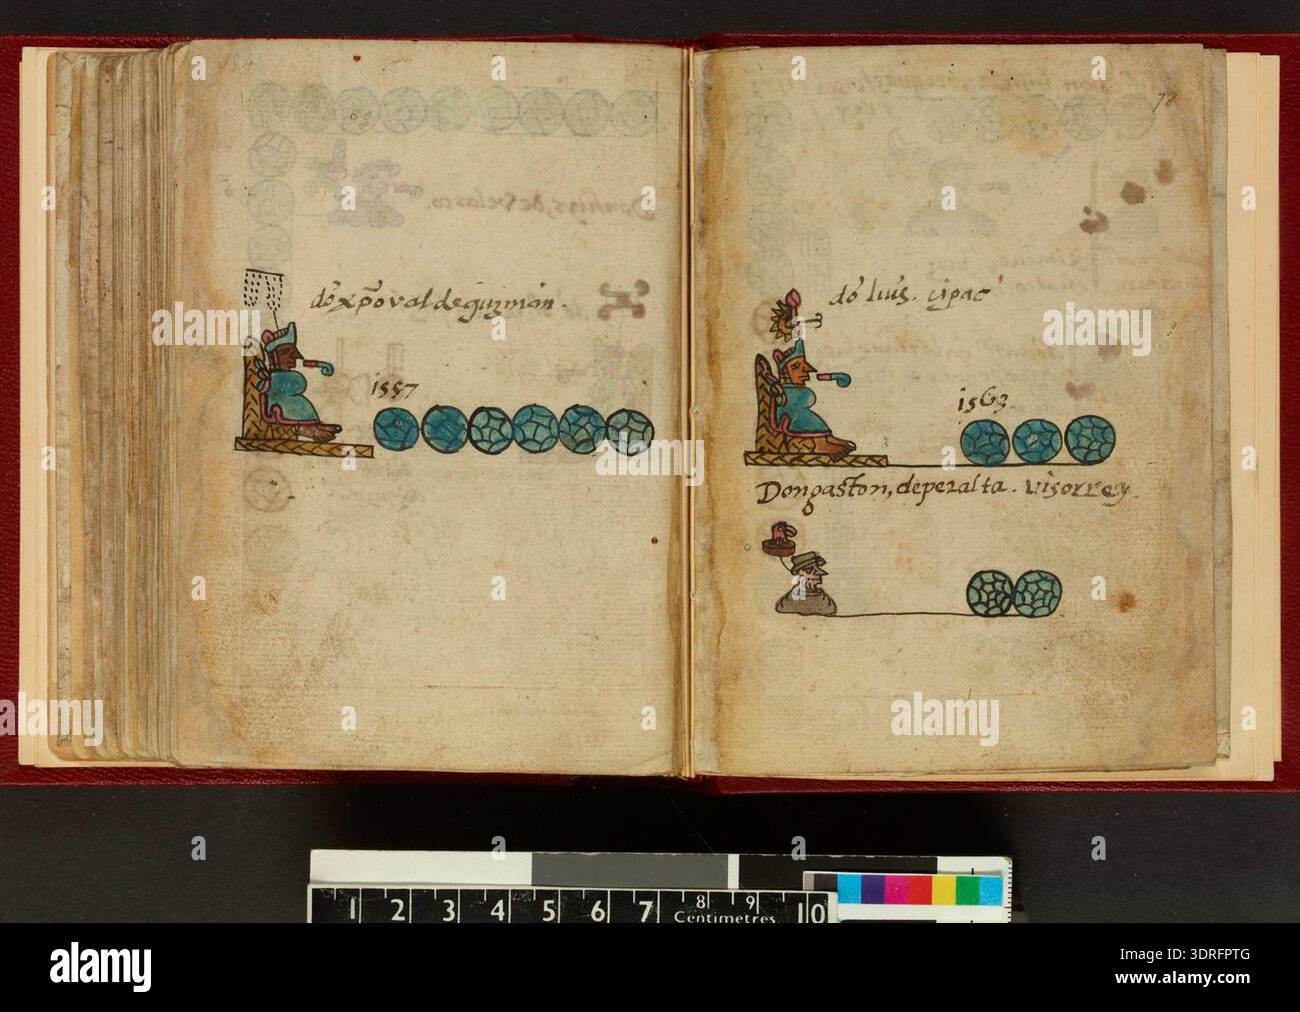 dõ xp̃oval de guzman.
1557
78
dõ luis. çipac
1563.
Don gaston, de peralta. visorrey.
1 2 3 4 5 6 7 8 9 10
Centimetres
alamy
Image ID: 3DRFPTG
www.alamy.com